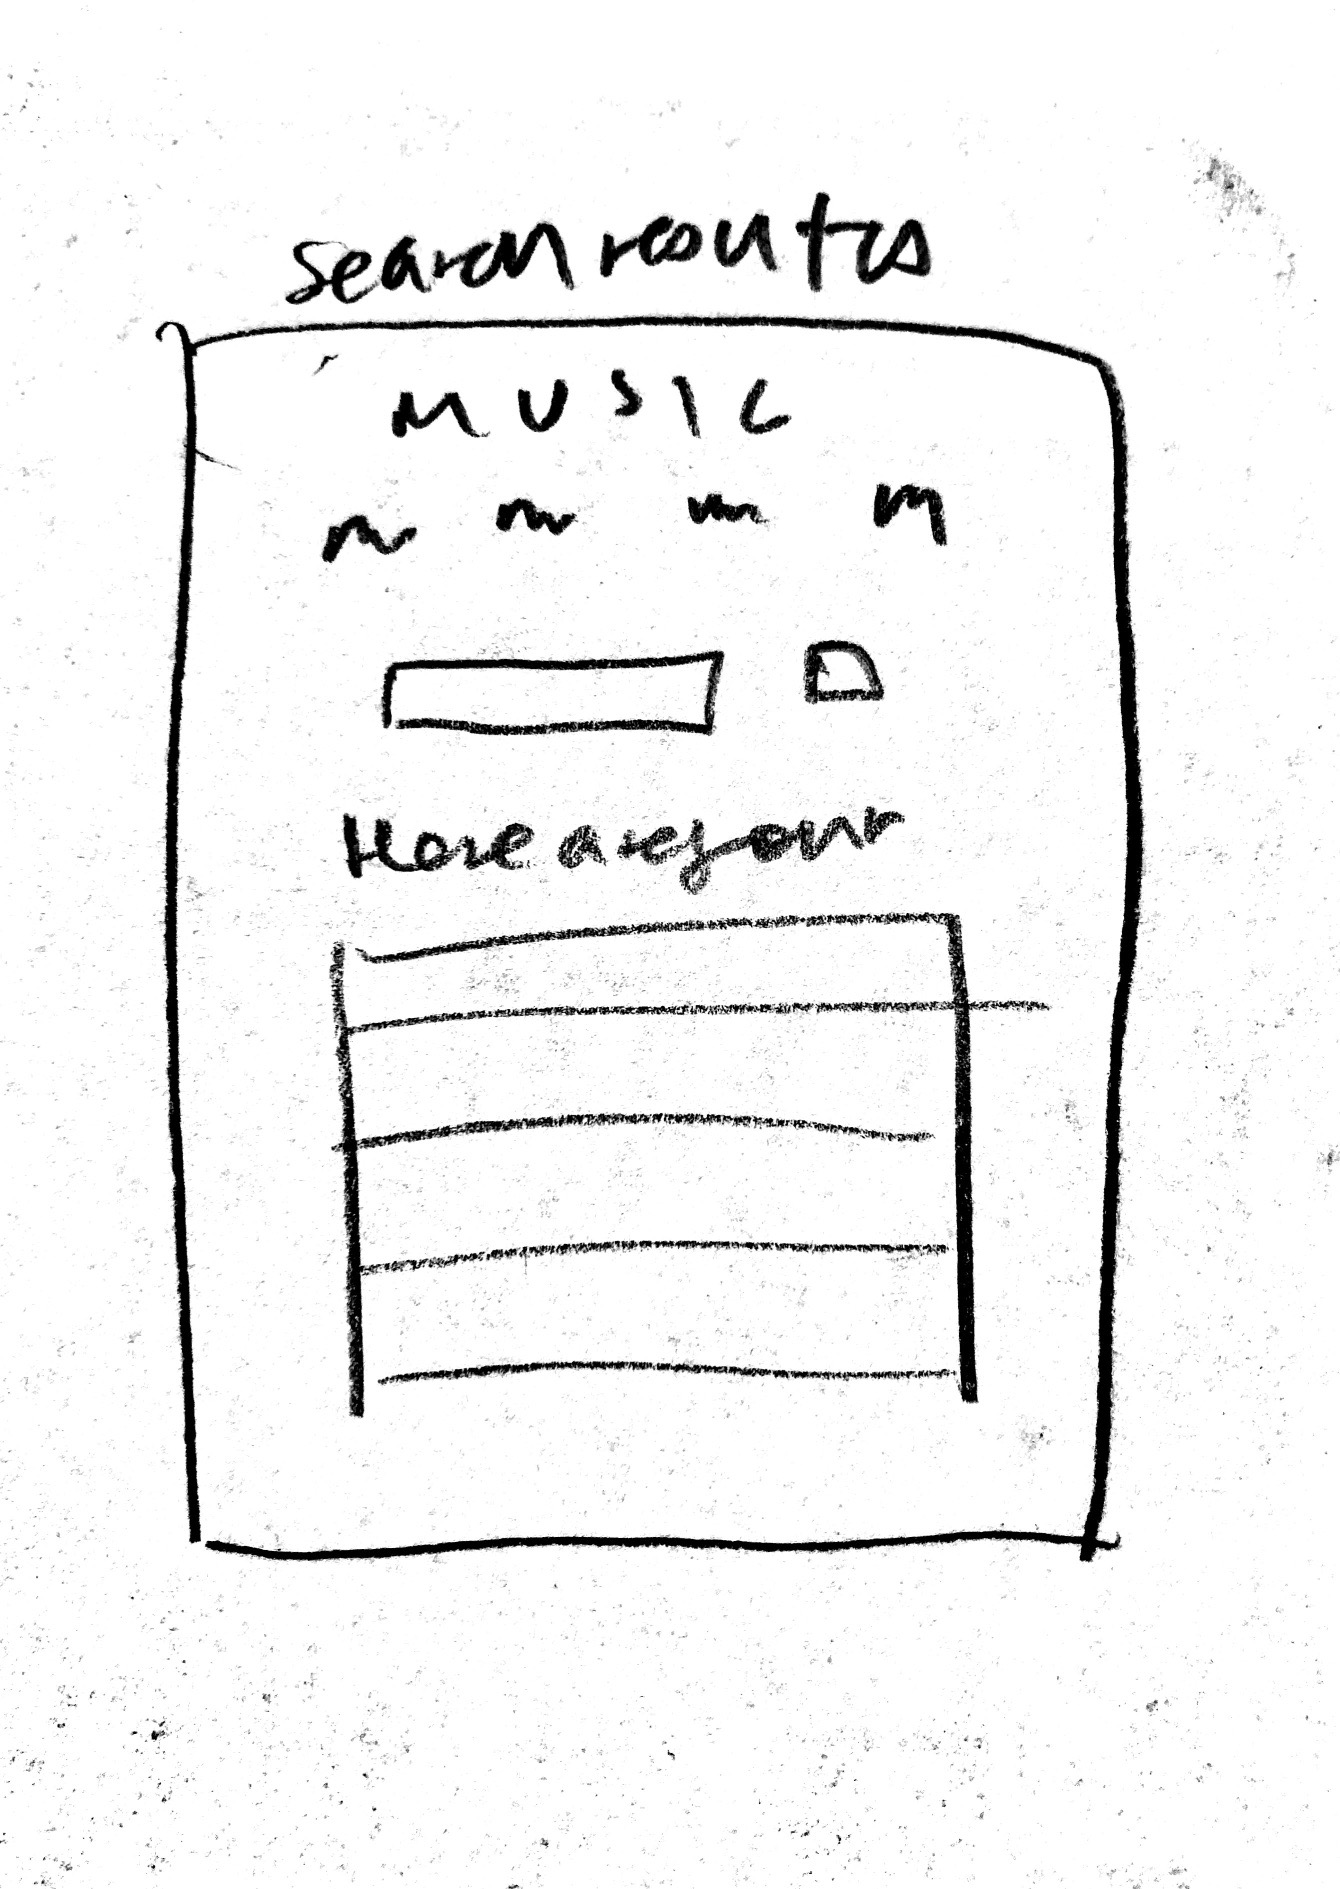 Search results
MUSIC
Here are your